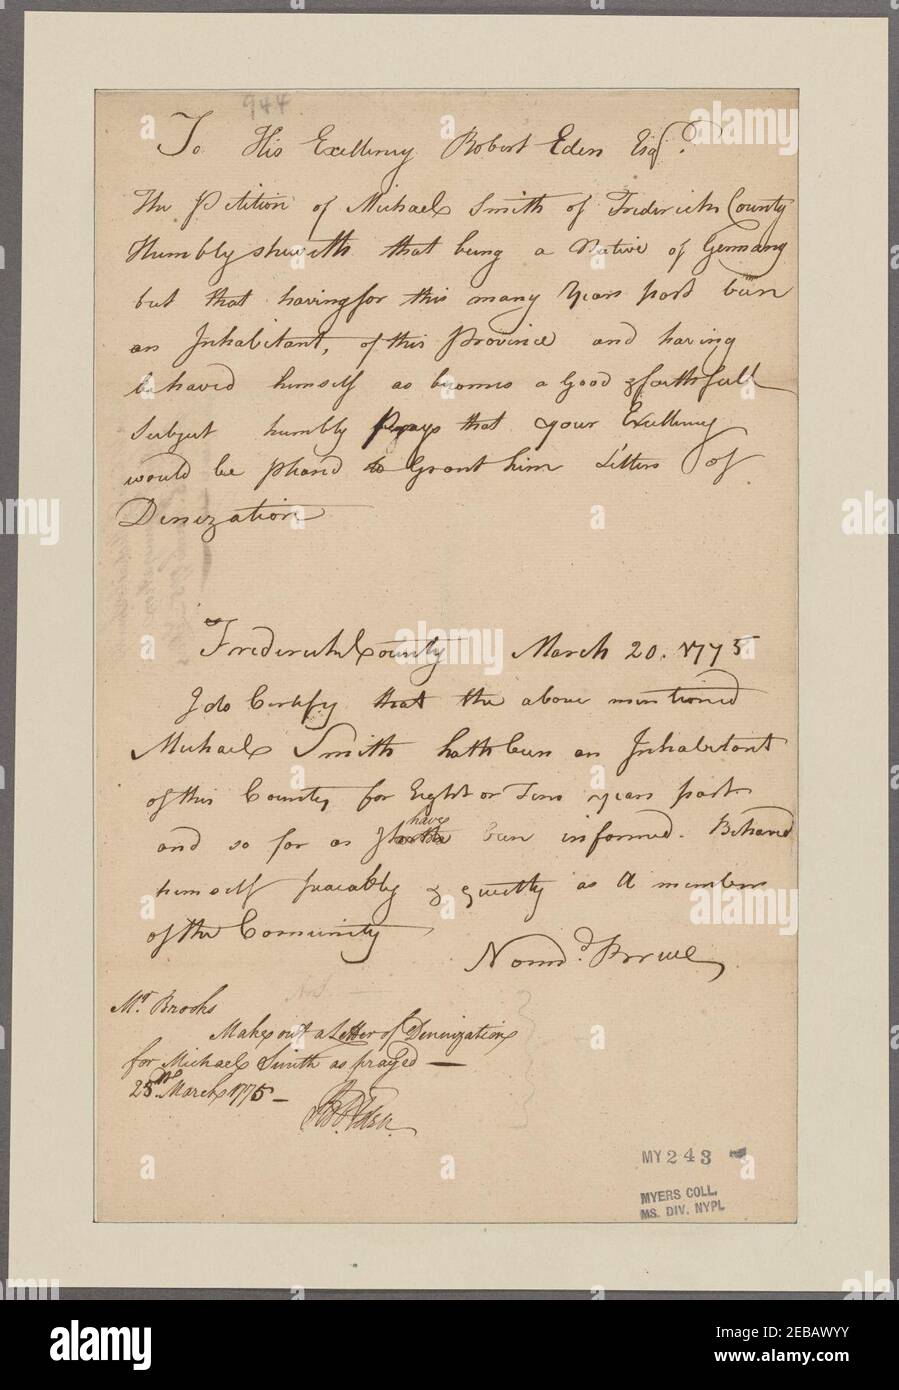 944
To His Exellency Robert Eden Esqr.
The Petition of Michael Smith of Frederick County
Humbly sheweth that being a Native of Germany
but that having for this many Years past been
an Inhabitant, of this Province and having
behaved himself as becomes a Good & faithfull
Subject humbly Prays that your Exellency
would be pleasd to Grant him Letters of
Denization
Frederick County March 20. 1775
I do Certify that the above mentioned
Michael Smith hath been an Inhabitant
of this County for Eight or Tenn years past
and so far as I have been informed. Behaved
himself peacably & quietly as a member
of the Community
Normd. Bruce
Mr. Brooks
Make out a Letter of Denization
for Michael Smith as prayed —
25th. March 1775 —
Robt Eden
MY 243
MYERS COLL.
MS. DIV. NYPL
alamy
Image ID: 2EBAWYY
www.alamy.com